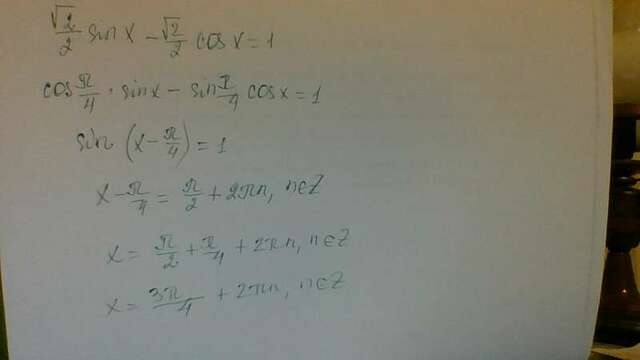 √2/2 sin x − √2/2 cos x = 1
cos π/4 · sin x − sin π/4 cos x = 1
sin (x − π/4) = 1
x − π/4 = π/2 + 2πn, n∈Z
x = π/2 + π/4 + 2πn, n∈Z
x = 3π/4 + 2πn, n∈Z